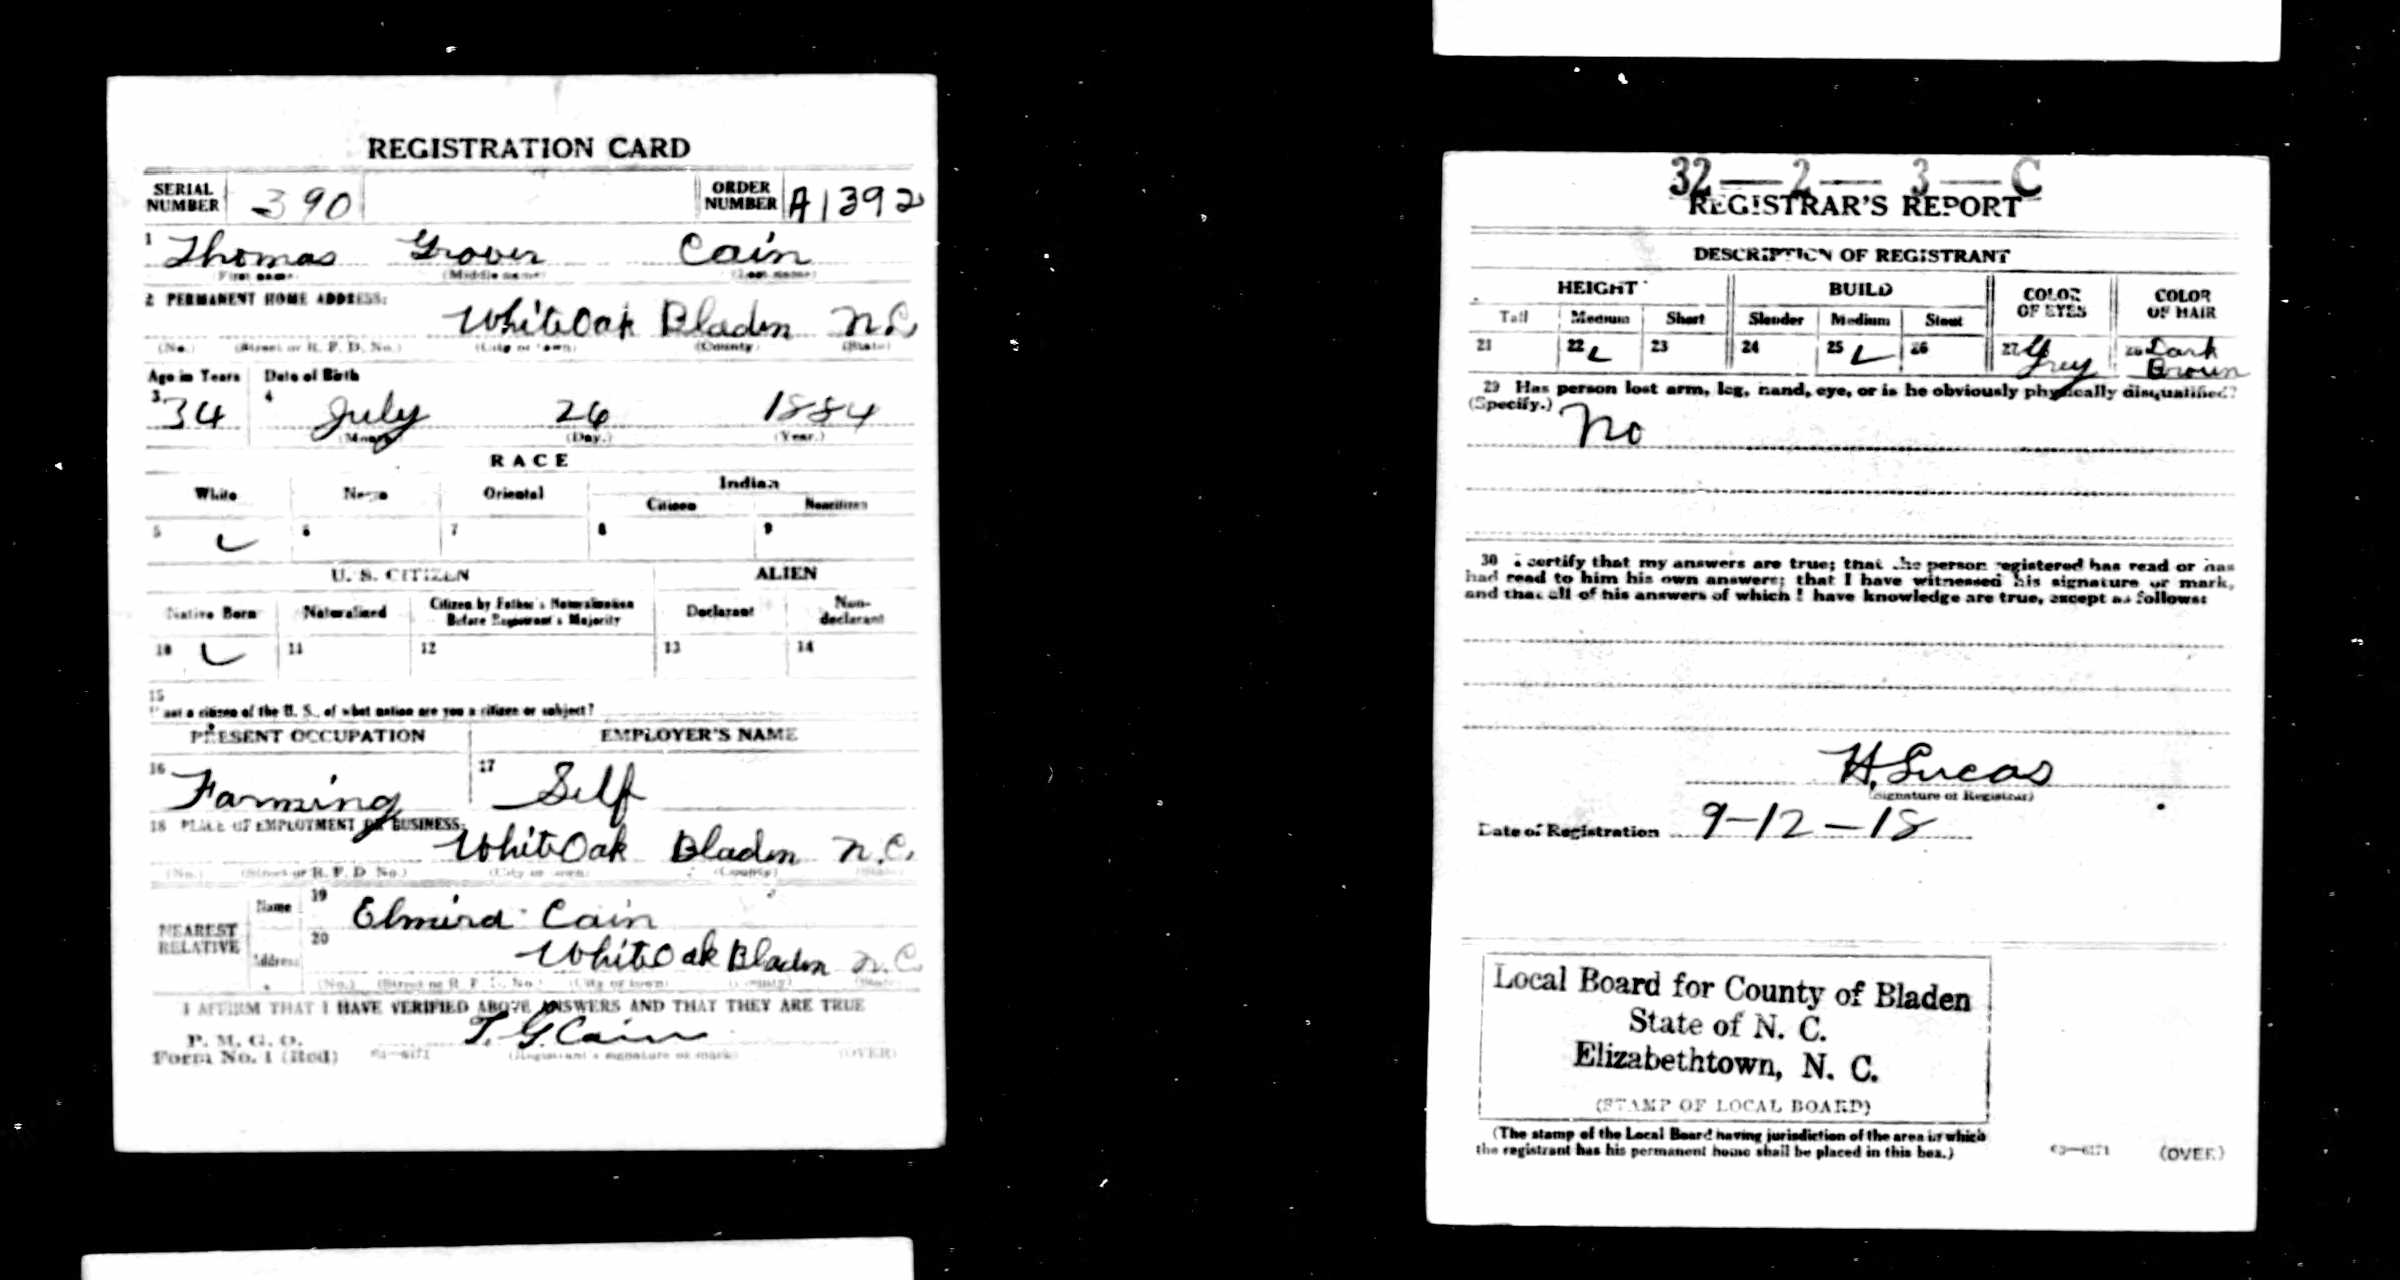 REGISTRATION CARD
SERIAL NUMBER 390 ORDER NUMBER A1392
1 Thomas Grover Cain
(First name) (Middle name) (Last name)
2 PERMANENT HOME ADDRESS:
WhiteOak Bladen N.C.
(No.) (Street or R. F. D. No.) (City or town) (County) (State)
Age in Years Date of Birth
3 34 4 July 26 1884
(Month) (Day.) (Year.)
RACE
White Negro Oriental Indian
Citizen Noncitizen
5 6 7 8 9
U. S. CITIZEN ALIEN
Native Born Naturalized Citizen by Father's Naturalization Before Registrant's Majority Declarant Non-declarant
10 11 12 13 14
15
If not a citizen of the U. S., of what nation are you a citizen or subject?
PRESENT OCCUPATION EMPLOYER'S NAME
16 Farming 17 Self
18 PLACE OF EMPLOYMENT OR BUSINESS:
WhiteOak Bladen N.C.
(No.) (Street or R. F. D. No.) (City or town) (County) (State)
NEAREST RELATIVE
Name 19 Elmird Cain
Address 20 WhiteOak Bladen N.C.
(No.) (Street or R. F. D. No.) (City or town) (County) (State)
I AFFIRM THAT I HAVE VERIFIED ABOVE ANSWERS AND THAT THEY ARE TRUE
P. M. G. O.
Form No. 1 (Red) T. G. Cain
(Registrant's signature or mark) (OVER)
32—2—3—C
REGISTRAR'S REPORT
DESCRIPTION OF REGISTRANT
HEIGHT BUILD COLOR OF EYES COLOR OF HAIR
Tall Medium Short Slender Medium Stout
21 22 23 24 25 26 27 Grey 28 Dark Brown
29 Has person lost arm, leg, hand, eye, or is he obviously physically disqualified?
(Specify.) No
30 I certify that my answers are true; that the person registered has read or has
had read to him his own answers; that I have witnessed his signature or mark,
and that all of his answers of which I have knowledge are true, except as follows:
H. Lucas
(Signature of Registrar)
Date of Registration 9-12-18
Local Board for County of Bladen
State of N. C.
Elizabethtown, N. C.
(STAMP OF LOCAL BOARD)
(The stamp of the Local Board having jurisdiction of the area in which
the registrant has his permanent home shall be placed in this box.)
63—6171 (OVER)